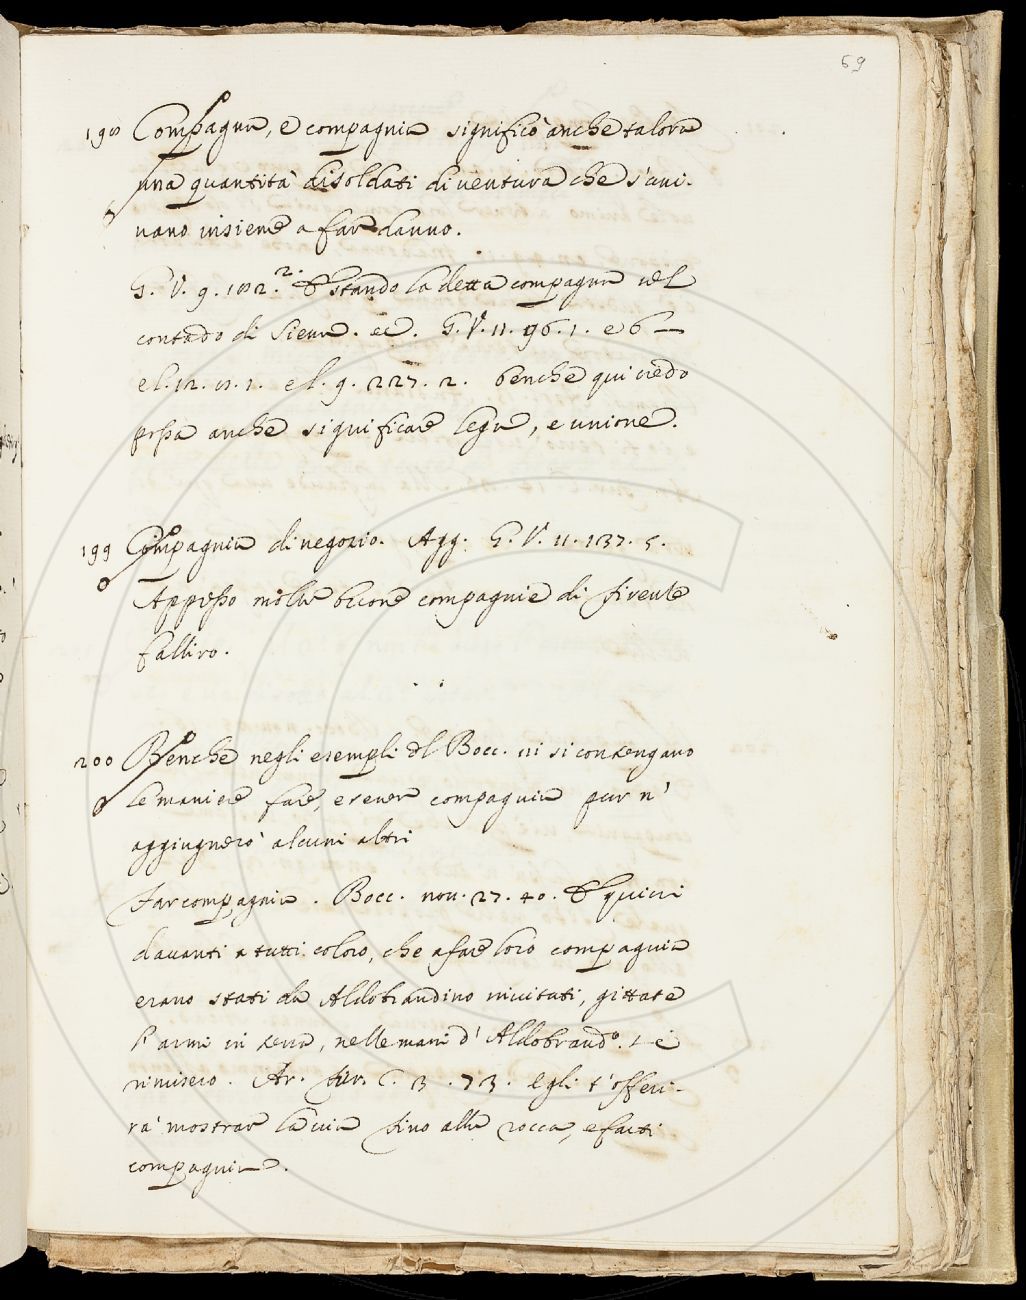 69
198 Compagna, e compagnia significò anche talora
una quantità di soldati di ventura che s'uni-
vano insieme a far danno.
G. V. 9. 182. 2. E stando la detta compagna nel
contado di Siena. ec. G. V. 11. 96. 1. e 6
e l. 12. 1. e l. 9. 227. 2. benche qui credo
possa anche significare lega, e unione.
199 Compagnia di negozio. Agg. G. V. 11. 137. 5.
Appresso molte buone compagnie di Firenze
falliro.
200 Benche negli esempli del Bocc. vi si contengano
le maniere fare, e tener compagnia pur n'
aggiugnerò alcuni altri
Far compagnia. Bocc. nov. 27. 40. E quivi
davanti a tutti coloro, che a fare loro compagnia
erano stati da Aldobrandino invitati, gittate
l'armi in terra, nelle mani d'Aldobrando. si
rimisero. Ar. fur. C. 13. 73. Egli t'offeri-
rà mostrar la via fino alla rocca, e farti
compagnia.